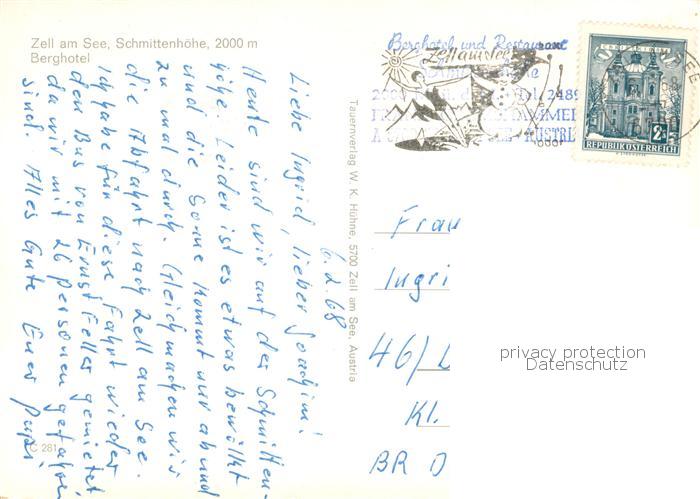 Zell am See, Schmittenhöhe, 2000 m
Berghotel
6.2.68
Liebe Ingrid, lieber Joachim!
Heute sind wir auf der Schmitten-
höhe. Leider ist es etwas bewölkt
und die Sonne kommt nur ab und
zu mal durch. Gleich machen wir
die Abfahrt nach Zell am See.
Ich habe für diese Fahrt wieder
den Bus von Ernst Feller gemietet
da wir mit 26 Personen gefahren
sind. Alles Gute Euer Papi
C 281
Tauernverlag W. K. Hühne, 5700 Zell am See, Austria
Berghotel und Restaurant
Zell am See
CHRISTKINDL
2 S
REPUBLIK ÖSTERREICH
Frau
Ingri
46/L
Kl.
BR D
privacy protection
Datenschutz